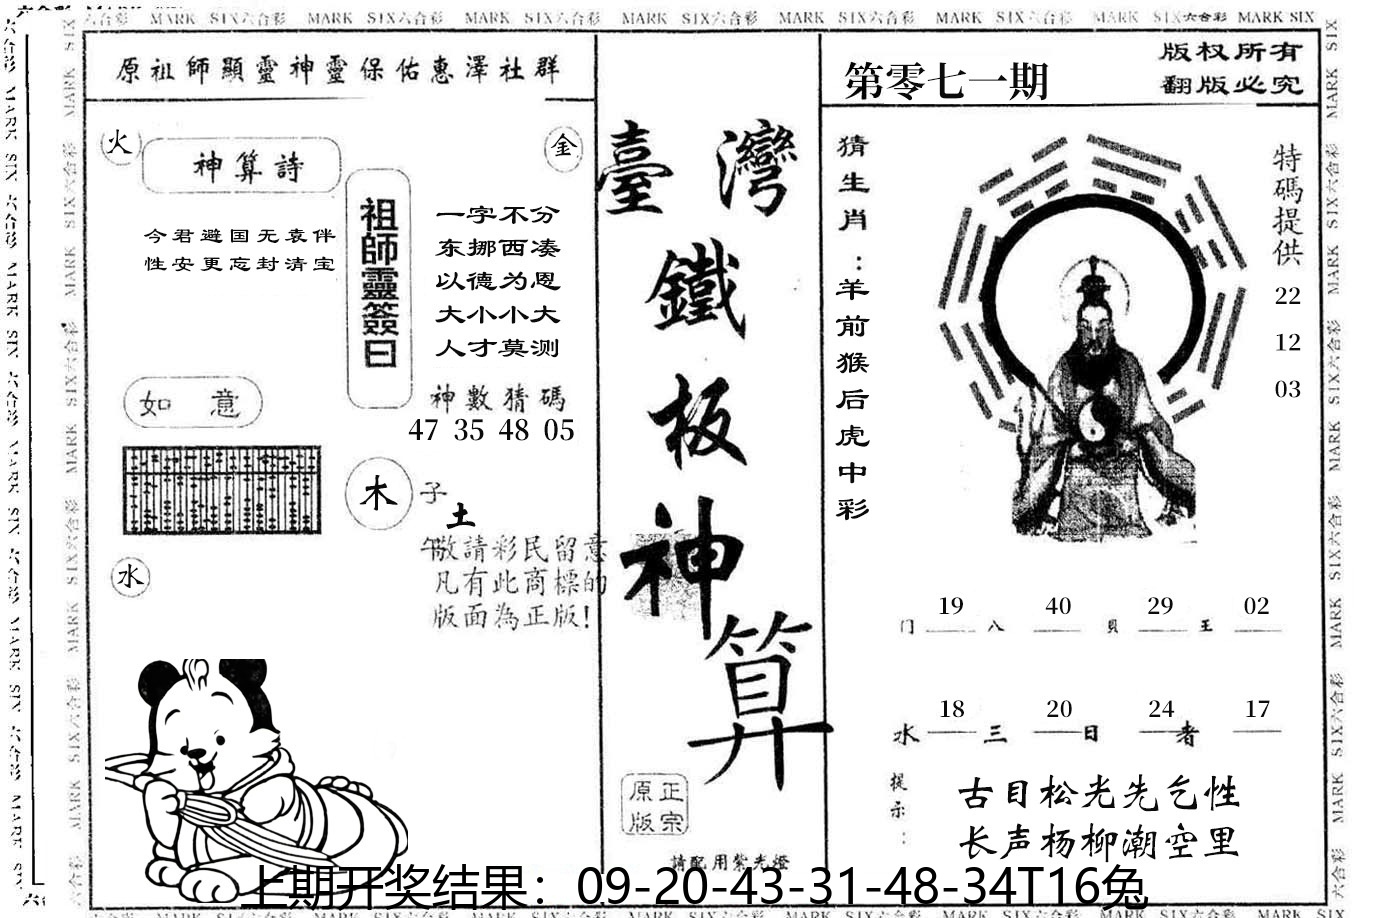 MARK SIX六合彩 MARK SIX六合彩 MARK SIX六合彩 MARK SIX六合彩 MARK SIX六合彩 MARK SIX六合彩 MARK SIX六合彩 MARK SIX
原祖師顯靈神靈保佑惠澤社群
火
金
神算詩
今君避国无袁伴
性安更忘封清宝
祖師靈簽曰
一字不分
东挪西凑
以德为恩
大小小大
人才莫测
神數猜碼
47 35 48 05
如意
木
子
土
午
水
敬請彩民留意
凡有此商標的
版面為正版!
臺灣
鐵
板
神
算
正宗
原版
請配用紫光燈
第零七一期
版权所有
翻版必究
猜生肖：羊前猴后虎中彩
特碼提供
22
12
03
19 40 29 02
门 八 貝 王
18 20 24 17
水 三 日 者
提示：
古目松光先乞性
长声杨柳潮空里
上期开奖结果：09-20-43-31-48-34T16兔